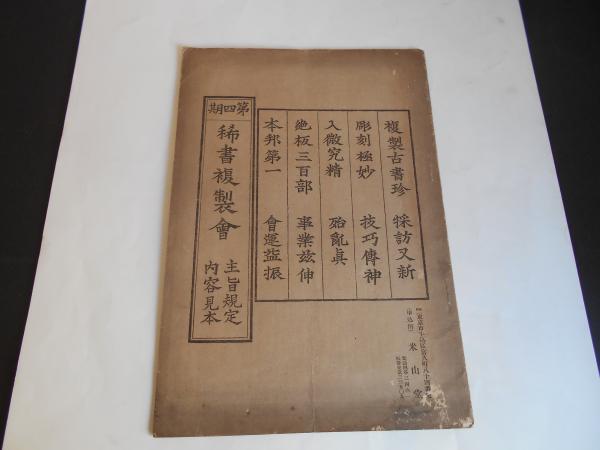 複製古書珍 採訪又新
彫刻極妙 技巧傳神
入微究精 殆亂眞
絶板三百部 事業玆伸
本邦第一 會運益振
第四期
稀書複製會
主旨規定
内容見本
米山堂